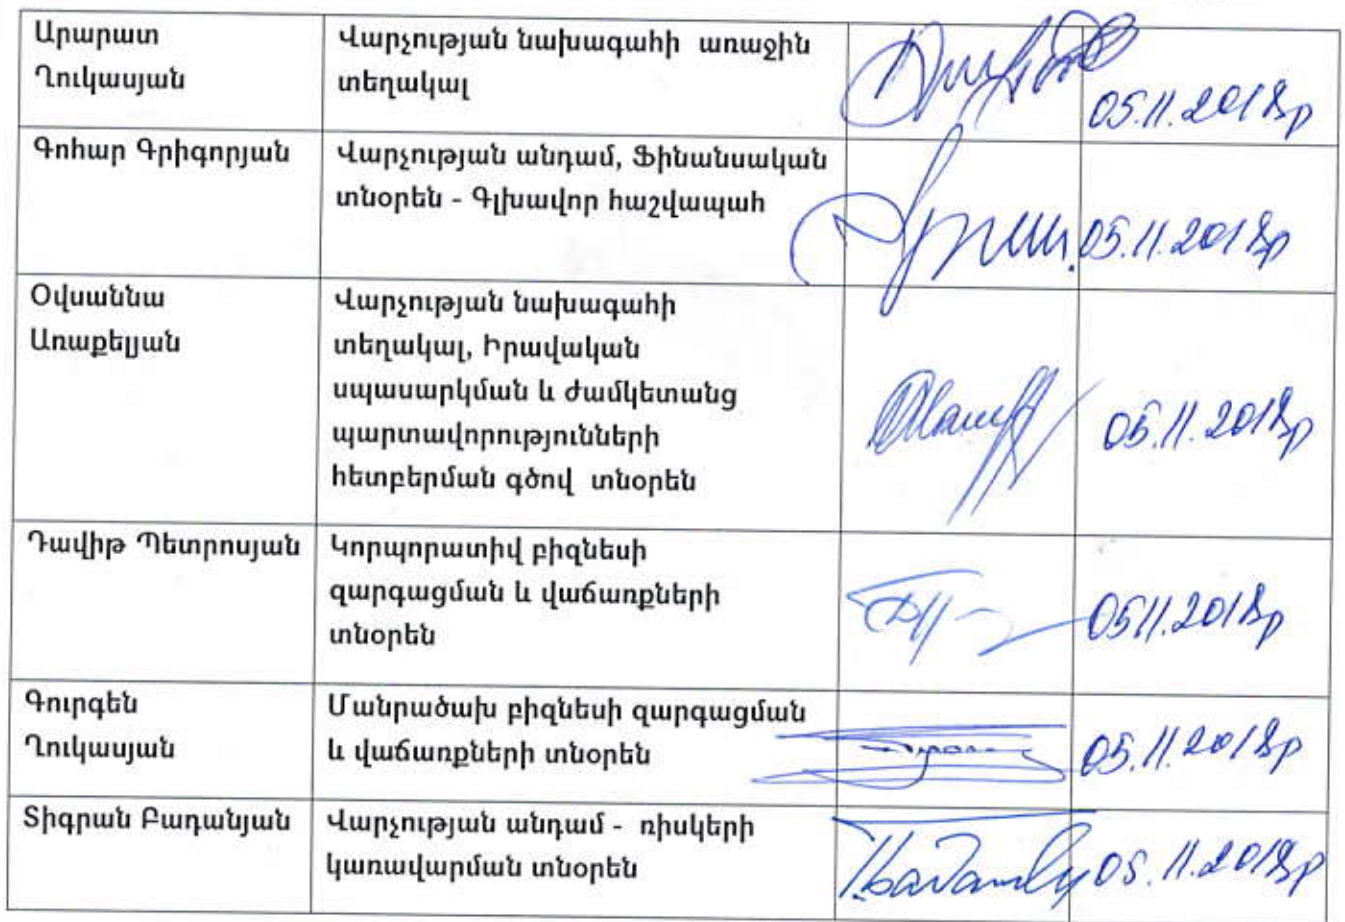 Արարատ
Ղուկասյան
Վարչության նախագահի առաջին
տեղակալ
05.11.2018թ
Գոհար Գրիգորյան
Վարչության անդամ, Ֆինանսական
տնօրեն - Գլխավոր հաշվապահ
05.11.2018թ
Օվսաննա
Առաքելյան
Վարչության նախագահի
տեղակալ, Իրավական
սպասարկման և ժամկետանց
պարտավորությունների
հետբերման գծով տնօրեն
05.11.2018թ
Դավիթ Պետրոսյան
Կորպորատիվ բիզնեսի
զարգացման և վաճառքների
տնօրեն
0511.2018թ
Գուրգեն
Ղուկասյան
Մանրածախ բիզնեսի զարգացման
և վաճառքների տնօրեն
05.11.2018թ
Տիգրան Բադանյան
Վարչության անդամ - ռիսկերի
կառավարման տնօրեն
05.11.2018թ